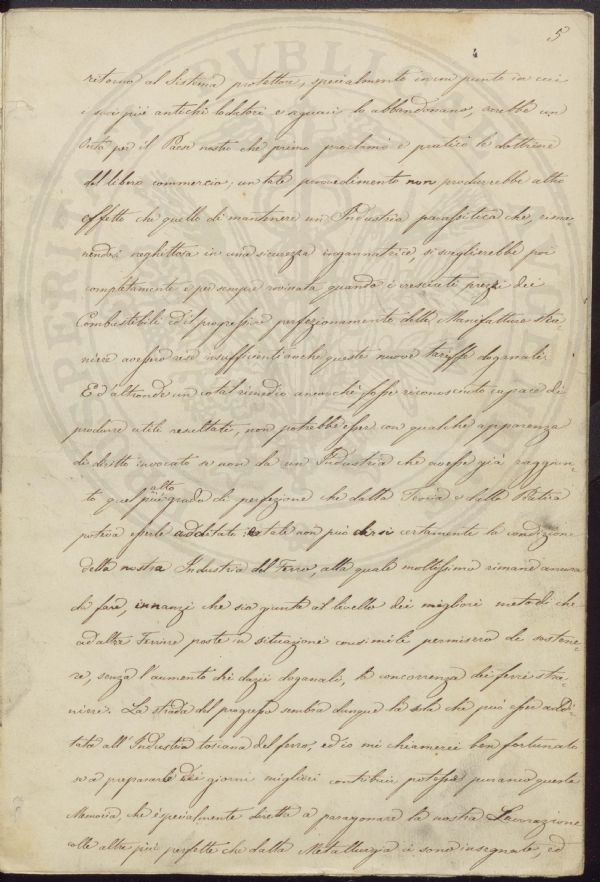 5
ritorno al Sistema protettore, specialmente in un punto in cui
i suoi più antichi lodatori e seguaci lo abbandonano, sarebbe un
onta per il Paese nostro che primo proclamò e praticò le dottrine
del libero commercio; un tale provvedimento non produrrebbe altro
effetto che quello di mantenere un Industria parassitica che, rima-
nendosi neghittosa in una sicurezza ingannatrice, si sveglierebbe poi
completamente e per sempre rovinata quando i cresciuti prezzi dei
Combustibili ed il progressivo perfezionamento delle Manifatture stra-
niere avessero resi insufficienti anche queste nuove tariffe doganali.
Ed altronde un cotal rimedio ancorchè fosse riconosciuto capace di
produrre utili resultati, non potrebbe esser con qualche apparenza
di diritto invocato se non da un Industria che avesse già raggiun-
to quel più alto grado di perfezione che dalla Teoria e dalla Pratica
poteva esserle additato: e tale non può dirsi certamente la condizione
della nostra Industria del Ferro, alla quale moltissimo rimane ancora
di fare, innanzi che sia giunta al livello dei migliori metodi che
ad altre Ferriere poste in situazioni consimile permisero di sostene-
re, senza l'aumento dei dazi doganali, la concorrenza dei ferri stra-
nieri. La strada del progresso sembra dunque la sola che può esser addi-
tata all'Industria toscana del ferro, ed io mi chiamerei ben fortunato
se a prepararle dei giorni migliori contribuir potesse puranco questa
Memoria, che è specialmente diretta a paragonare la nostra Lavorazione
colle altre più perfette che dalla Metallurgia ci sono insegnate, ed